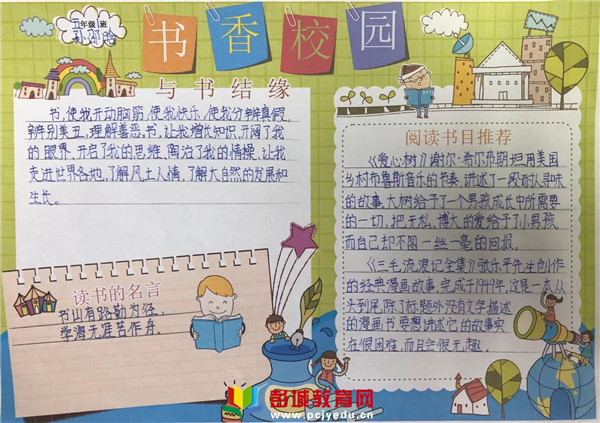 五年级1班
书香校园
与书结缘
书,使我开动脑筋,使我快乐,使我分辨真假,
辨别美丑,理解善恶。书,让我增长知识,开阔了我
的眼界,开启了我的思维,陶冶了我的情操,让我
走进世界各地,了解风土人情,了解大自然的发展和
生长。
读书的名言
书山有路勤为径,
学海无涯苦作舟。
阅读书目推荐
《爱心树》谢尔·希尔弗斯坦用美国
乡村布鲁斯音乐的节奏,讲述了一段耐人寻味
的故事,大树给予了一个男孩成长中所需要
的一切,把无私、博大的爱给予了小男孩,
而自己却不图一丝一毫的回报。
《三毛流浪记全集》张乐平先生创作
的经典漫画故事,完成于1949年,这是一本从
头到尾,除了标题外没有文字描述
的漫画书,要想讲述它的故事实
在很困难,而且会很无趣。
彭城教育网
www.pcjyedu.cn